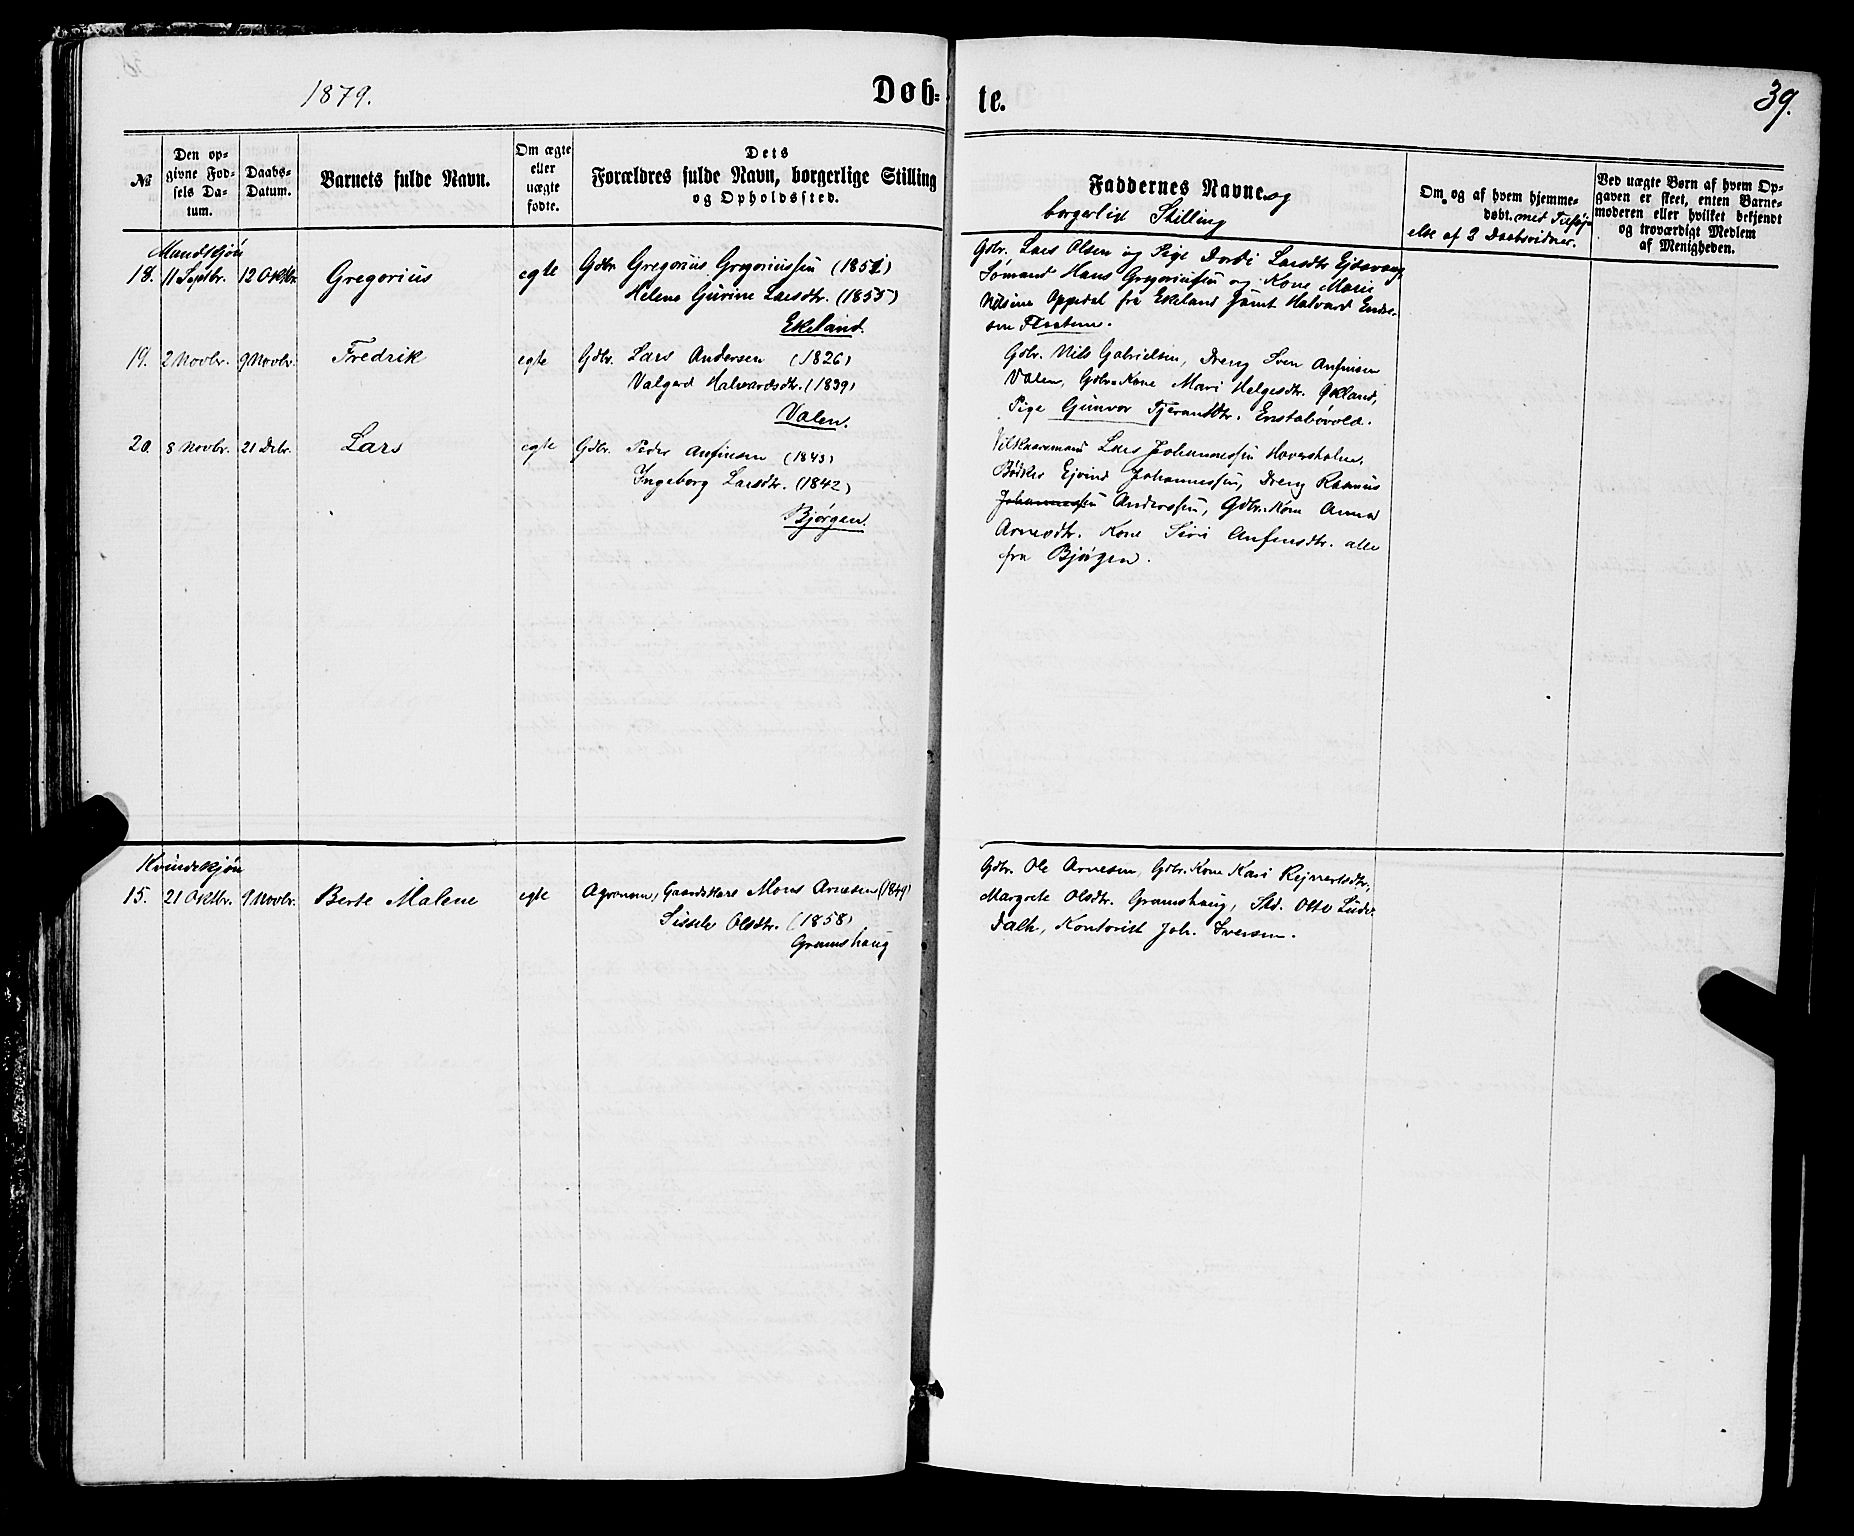 1879.
Døb=
te.
39.
No
Den op-
givne Fød-
sels Da-
tum.
Daabs-
Datum.
Barnets fulde Navn.
Om ægte
eller
uægte
fødte.
Dets
Forældres fulde Navn, borgerlige Stilling
og Opholdssted.
Faddernes Navne og
borgerlig Stilling
Om og af hvem hjemme-
døbt. med Tilføj-
else af 2 Daabsvidner.
Ved uægte Børn af hvem Op-
gaven er skeet, enten Barne-
moderen eller hvilket bekjendt
og troværdigt Medlem
af Menigheden.
Mandskjøn
18. 11 Septbr. 12 Oktbr. Gregorius egte Gdbr. Gregorius Gregoriussen (1851)
Helene Gurine Larsdtr. (1855)
Ekeland.
Gdbr. Lars Olsen og Pige Dordi Larsdtr Ejdsvaag,
Sømand Hans Gregoriussen og Kone Marie
Nilsine Oppedal fra Ekeland samt Halvard Endre-
sen Flaatene.
19. 2 Novbr. 9 Novbr. Fredrik egte Gdbr. Lars Andersen (1826)
Valgerd Halvardsdtr. (1839)
Valen.
Gdbr. Nils Gabrielsen, Dreng Sven Anfinsen
Valen, Gdbr. Kone Mari Helgesdtr. Økland,
Pige Gunvor Tjerandsdtr. Enstabøvold.
20. 8 Novbr. 21 Debr. Lars egte Gdbr. Peder Anfinsen (1843)
Ingeborg Larsdtr. (1842)
Bjørgen.
Vilkaarsmand Lars Johannessen Haversholm,
Bødker Ejvind Johannessen, Dreng Rasmus
Johannessen Anderssen, Gdbr. Kone Anna
Arnesdtr. Kone Siri Anfinsdtr. alle
fra Bjørgen.
Kvindekjøn
15. 21 Oktbr. 9 Novbr. Berte Malene egte Agronom, Gaardskarl Mons Arnesen (1849)
Sissele Olsdtr. (1858)
Gramshaug
Gdbr. Ole Arnesen, Gdbr. Kone Kari Rejnertsdtr,
Margrete Olsdtr. Gramshaug, Otto
Dalh, Kontorist Joh. Iversen.